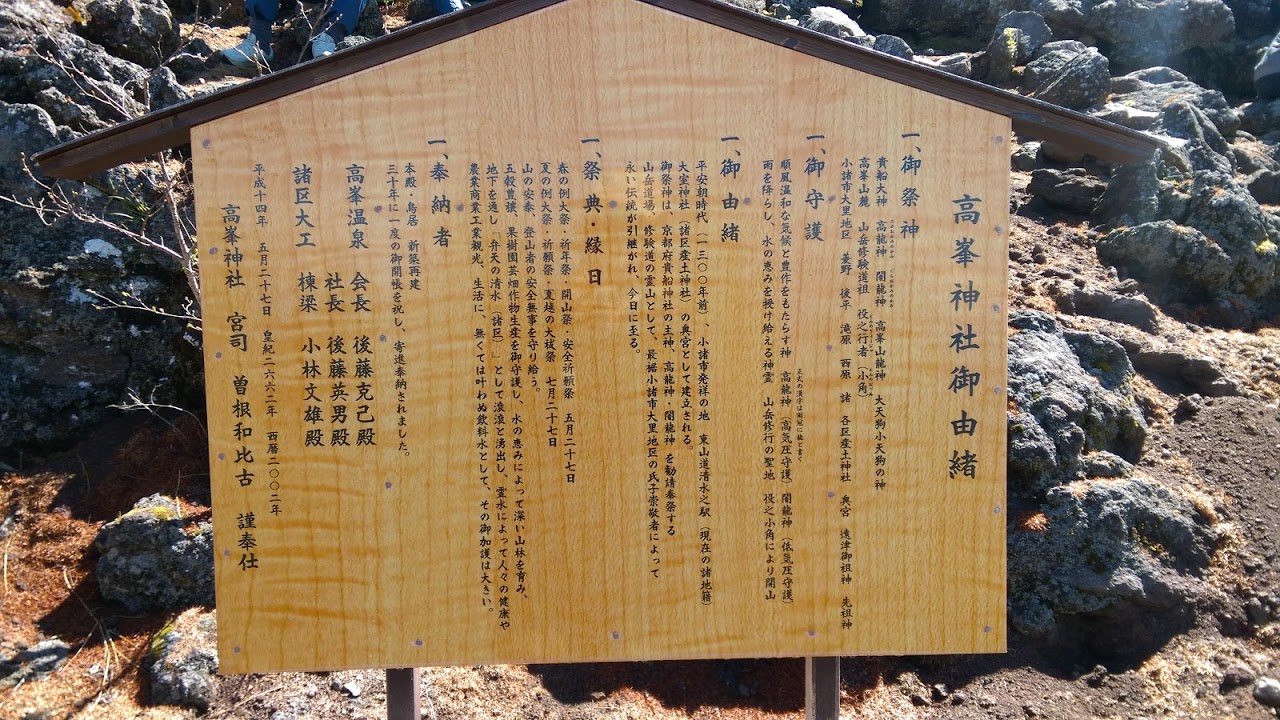 高峯神社御由緒
一、御祭神
貴船大神 高龍神 闇龍神 高峯山龍神 大天狗小天狗の神
高峯山麓 山岳修験道祖 役之行者(小角)
小諸市大里地区 菱野 後平 滝原 西原 諸 各区産土神社 奥宮 遠津御祖神 先祖神
一、御守護
順風温和な気候と豊作をもたらす神 高龍神(高気圧守護)闇龍神(低気圧守護)
雨を降らし、水の恵みを授け給える神霊 山岳修行の聖地 役之小角により開山
一、御由緒
平安朝時代(一三〇〇年前)、小諸市発祥の地 東山道清水之駅(現在の諸地籍)
大室神社(諸区産土神社)の奥宮として建立される。
御祭神は、京都府貴船神社の主神、高龍神・闇龍神 を勧請奉祭する
山岳道場、修験道の霊山として、最裾小諸市大里地区の氏子崇敬者によって
永い伝統が引継がれ、今日に至る。
一、祭典・縁日
春の例大祭・祈年祭・開山祭・安全祈願祭 五月二十七日
夏の例大祭・祈願祭・夏越の大祓祭 七月二十七日
山の安泰、登山者の安全無事を守り給う。
五穀豊穣、果樹園芸畑作物生産を御守護し、水の恵みによって深い山林を育み、
地下を通し「弁天の清水(諸区)」として滾滾と湧出し、霊水によって人々の健康や
農業商業工業観光、生活に、無くては叶わぬ飲料水として、その御加護は大きい。
一、奉納者
本殿・鳥居 新築再建
三十年に一度の御開帳を祝し、寄進奉納されました。
高峯温泉 会長 後藤克己殿
社長 後藤英男殿
諸区大工 棟梁 小林文雄殿
平成十四年 五月二十七日 皇紀二六六二年 西暦二〇〇二年
高峯神社 宮司 曽根和比古 謹奉仕